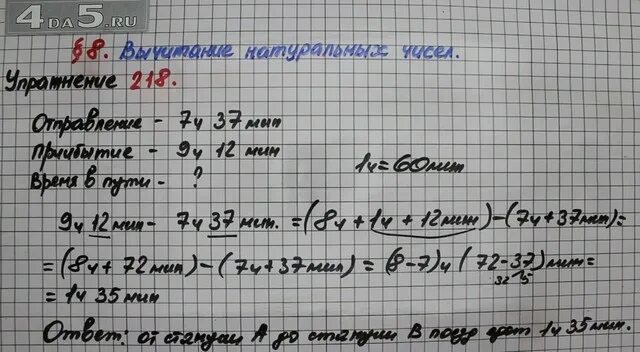 4DA5.RU
§ 8. Вычитание натуральных чисел.
Упражнение 218.
Отправление - 7ч 37 мин
Прибытие - 9ч 12 мин
1ч = 60 мин
Время в пути - ?
9ч 12 мин - 7ч 37 мин. = (8ч + 1ч + 12 мин) - (7ч + 37 мин) =
= (8ч + 72 мин) - (7ч + 37 мин) = (8-7)ч (72-37) мин =
32 5
= 1ч 35 мин
Ответ: от станции А до станции В поезд 1ч 35 мин.